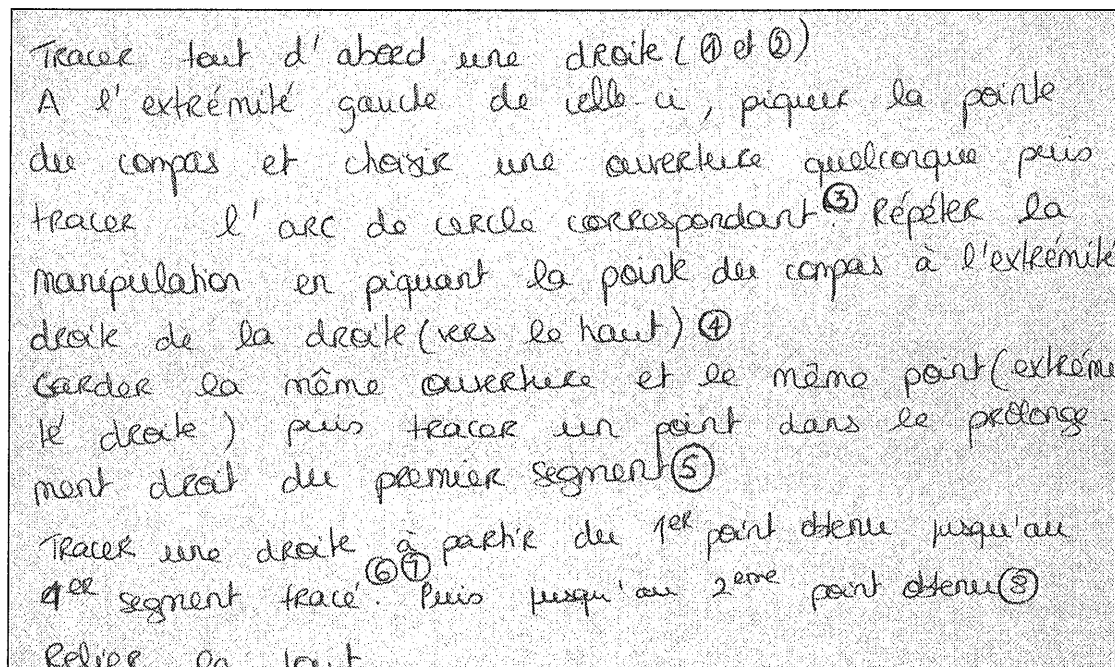 Tracer tout d'abord une droite (① et ②)
A l'extrémité gauche de celle-ci, piquer la pointe
du compas et choisir une ouverture quelconque puis
tracer l'arc de cercle correspondant.③ Répéter la
manipulation en piquant la pointe du compas à l'extrémité
droite de la droite (vers le haut) ④
Garder la même ouverture et le même point (extrémi
té droite) puis tracer un point dans le prolonge-
ment droit du premier segment ⑤
Tracer une droite à partir du 1er point obtenu jusqu'au
1er segment tracé.⑥⑦ Puis jusqu'au 2eme point obtenu ⑧
Relier le tout